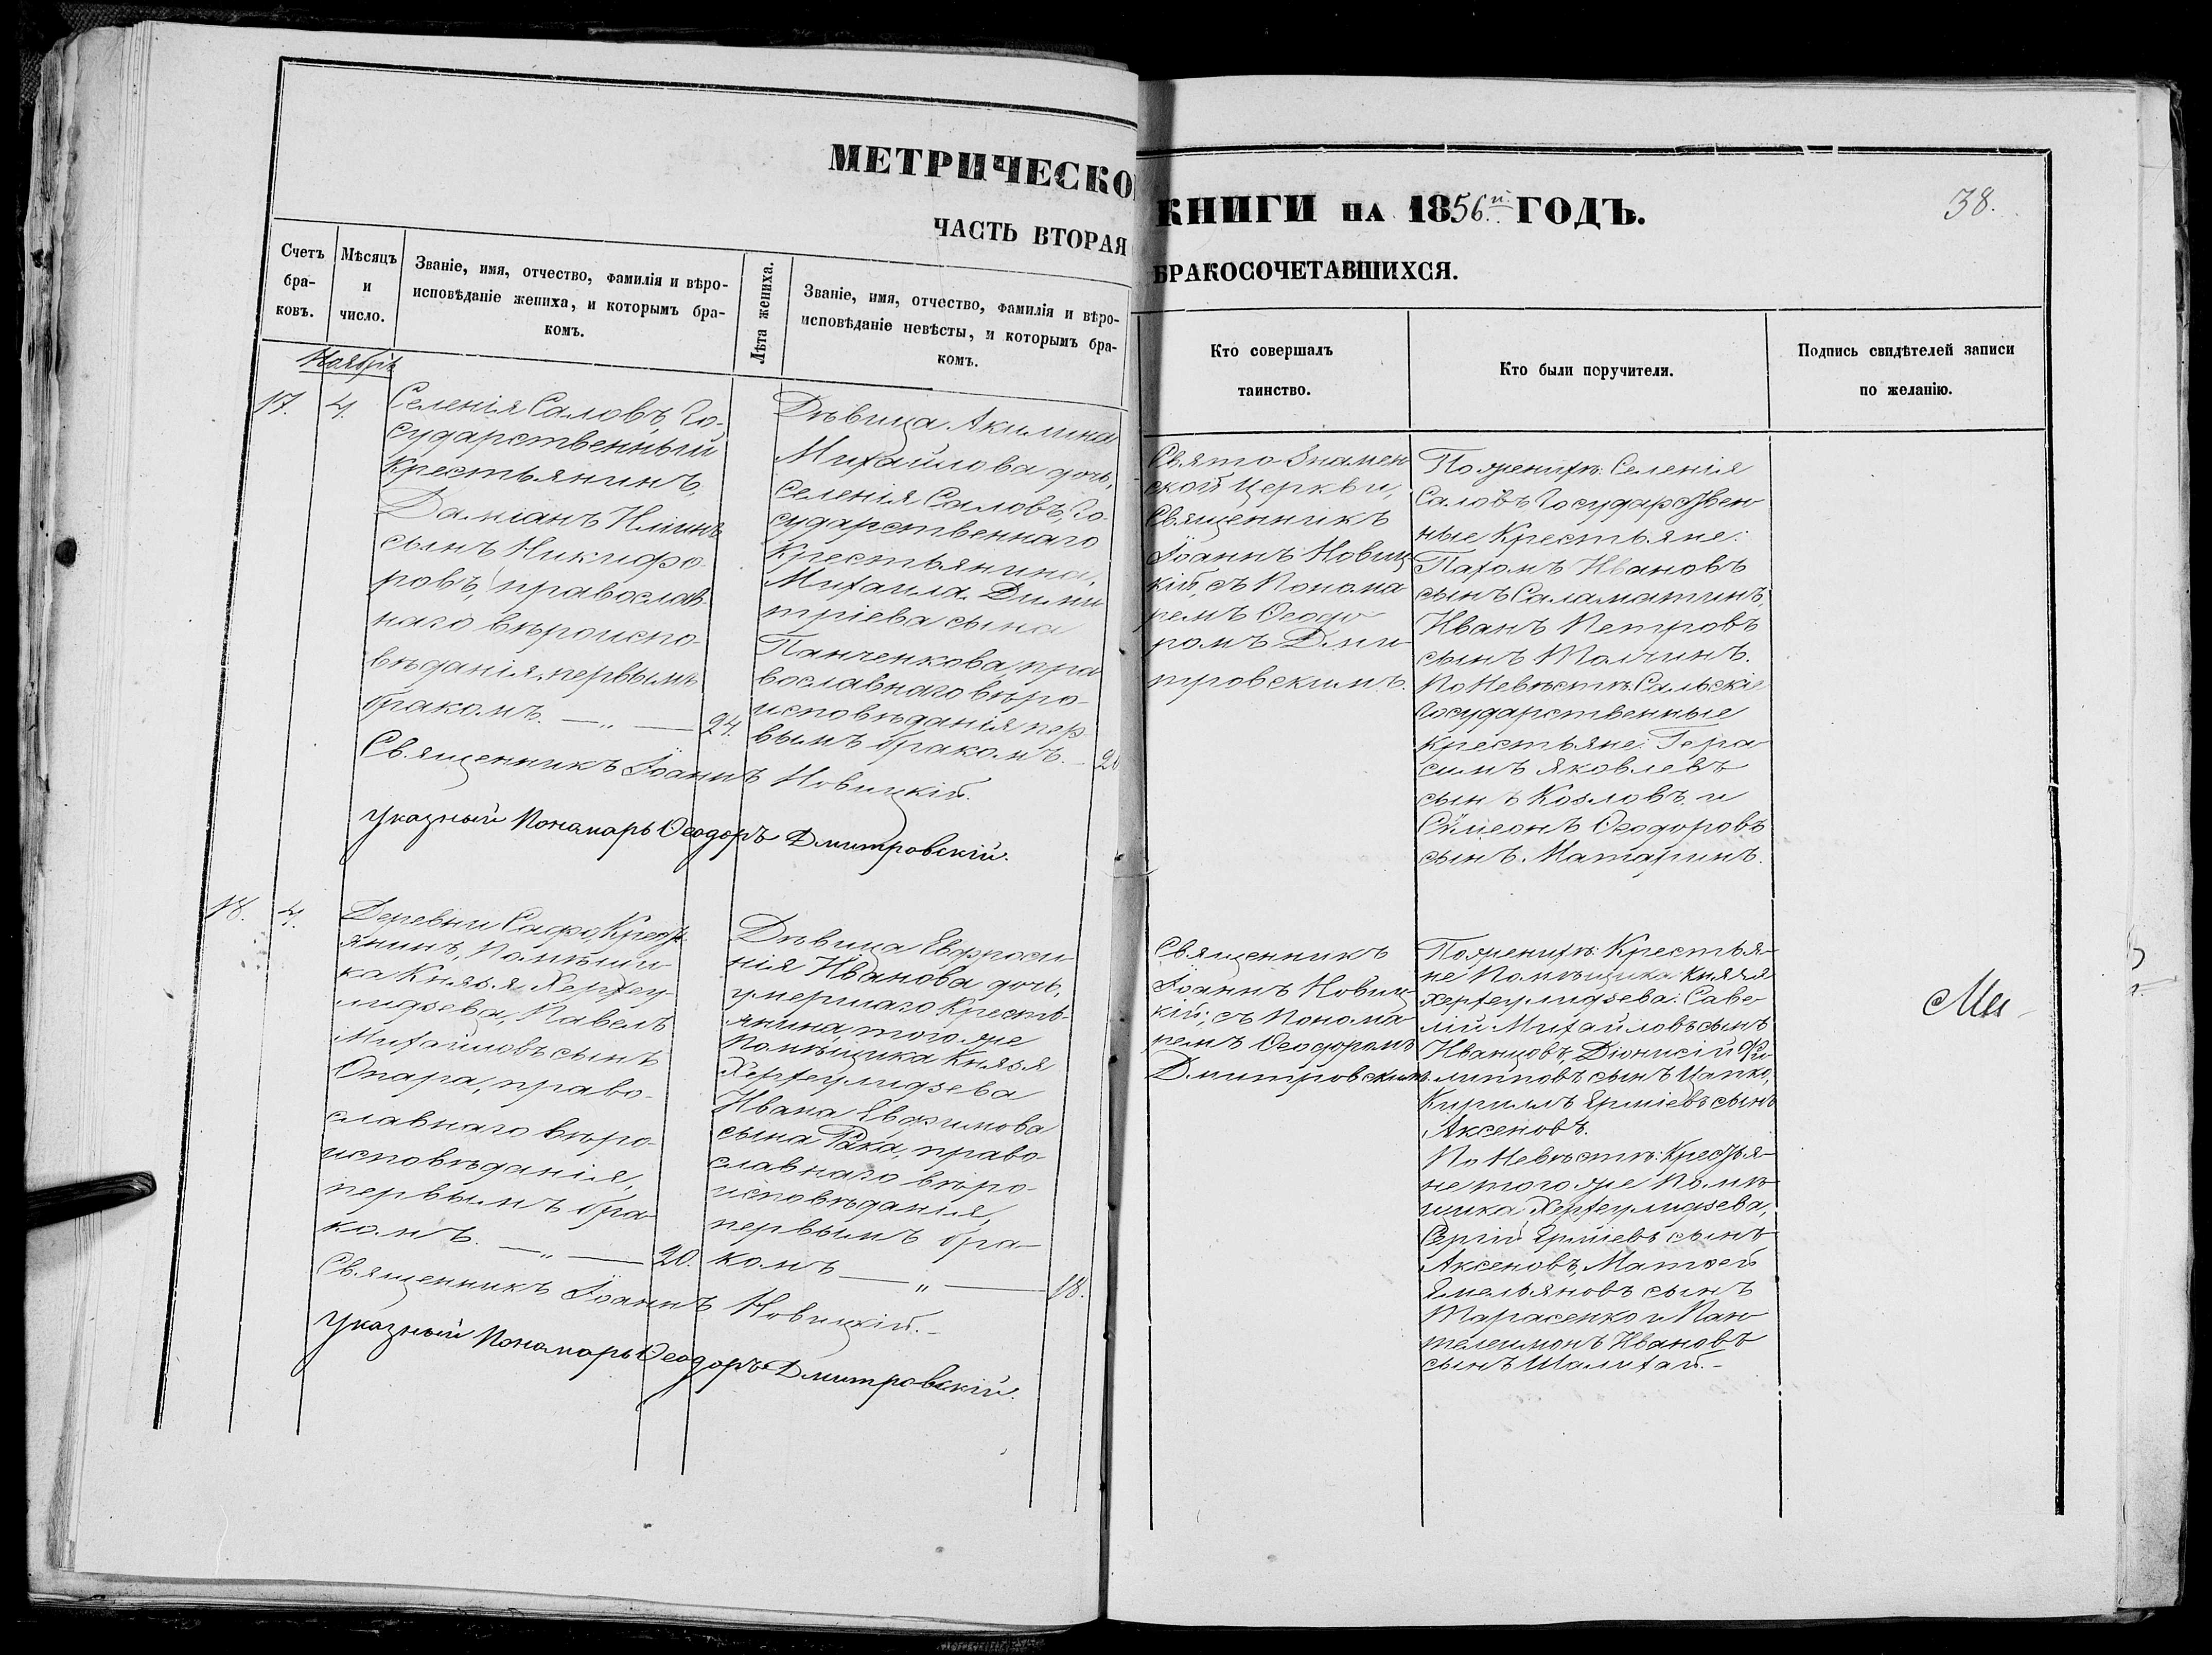 МЕТРИЧЕСКО
КНИГИ НА 1856й ГОДЪ.
38.
ЧАСТЬ ВТОРАЯ
БРАКОСОЧЕТАВШИХСЯ.
Счетъ
бра-
ковъ.
Мѣсяцъ
и
число.
Званіе, имя, отчество, фамилія и вѣро-
исповѣданіе жениха, и которымъ бра-
комъ.
Лѣта жениха.
Званіе, имя, отчество, фамилія и вѣро-
исповѣданіе невѣсты, и которымъ бра-
комъ.
Кто совершалъ
таинство.
Кто были поручители.
Подпись свидѣтелей записи
по желанію.
Ноябрь
17.
4.
Селенія Саловъ, Го-
сударственный
Крестьянинъ,
Даміанъ Иліинъ
сынъ Никифо-
ровъ, православ-
наго вѣроиспо-
вѣданія, первымъ
бракомъ. — „ — 24.
Дѣвица Акилина
Михайлова дочь,
Селенія Саловъ, Го-
сударственнаго
Крестьянина,
Михаила Дими-
тріева сына
Панченкова, пра-
вославнаго вѣро-
исповѣданія пер-
вымъ бракомъ. —
Священникъ Іоаннъ Новицкій.
Указный Пономарь Ѳеодоръ Дмитровскій.
Свято-Знамен-
ской Церкви,
Священникъ
Іоаннъ Новиц-
кій, съ Понома-
ремъ Ѳеодо-
ромъ Дми-
тровскимъ.
По женихѣ: Селенія
Саловъ Государствен-
ные Крестьяне:
Пахомъ Ивановъ
сынъ Саламатинъ,
Иванъ Петровъ
сынъ Толчинъ.
По Невѣстѣ: Сальскіе
Государственные
Крестьяне: Гера-
симъ Яковлевъ
сынъ Козловъ и
Сѵмеонъ Ѳеодоровъ
сынъ Матаринъ.
18.
4.
Деревни Сафо, Кресть-
янинъ, Помѣщи-
ка Князя Херхеу-
лидзева, Павелъ
Михайловъ сынъ
Опара, право-
славнаго вѣро-
исповѣданія,
первымъ бра-
комъ. — „ — 20.
Дѣвица Евфроси-
нія Иванова дочь,
умершаго Кресть-
янина, того же
Помѣщика Князя
Херхеулидзева
Ивана Евфимова
сына Рака, право-
славнаго вѣро-
исповѣданія,
первымъ бра-
комъ — „ — 18.
Священникъ Іоаннъ Новицкій. —
Указный Пономарь Ѳеодоръ Дмитровскій.
Священникъ
Іоаннъ Новиц-
кій; съ Понома-
ремъ Ѳеодоромъ
Дмитровскимъ.
По женихѣ: Крестья-
не Помѣщика Князя
Херхеулидзева: Саве-
лій Михайловъ сынъ
Иванцовъ, Діонисій Фи-
липповъ сынъ Цапко,
Кириллъ Ерміевъ сынъ
Аксеновъ.
По Невѣстѣ: Крестья-
не того же Помѣ-
щика Херхеулидзева,
Сергій Ерміевъ сынъ
Аксеновъ, Матѳей
Емельяновъ сынъ
Тарасенко и Пан-
телеимонъ Ивановъ
сынъ Шалихай. —